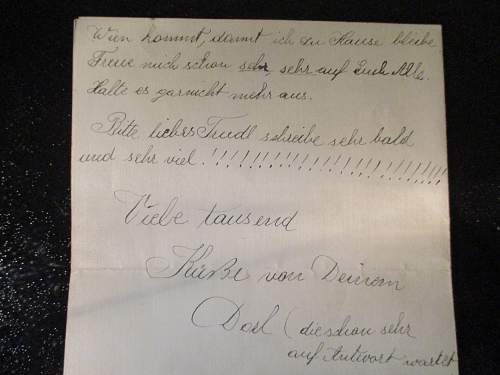 Wien kommt, damit ich zu Hause bleibe
Freue mich schon sehr, sehr auf Euch Alle.
Halte es garnicht mehr aus.
Bitte liebes Trudl schreibe sehr bald
und sehr viel!!!!!!!!!!!!!!!!!!!!!
Viele tausend
Küße von Deinem
Dorl (die schon sehr
auf Antwort wartet